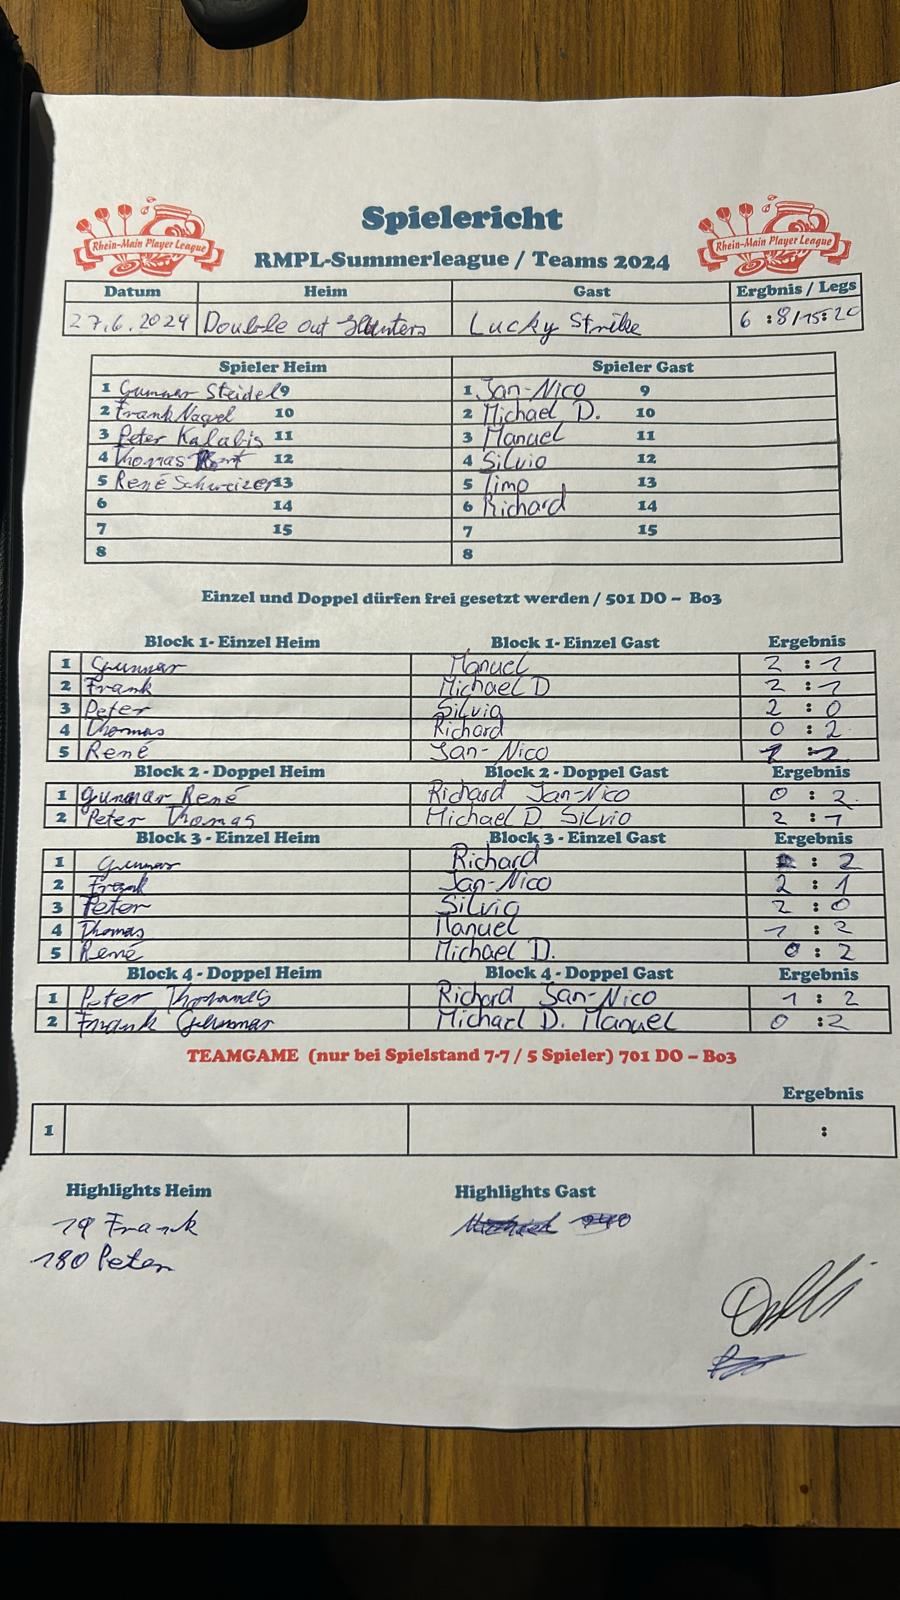 Spielericht
Rhein-Main Player League
Rhein-Main Player League
RMPL-Summerleague / Teams 2024
Datum Heim Gast Ergbnis / Legs
27.6.2024 Double out Lucky Strike 6 : 8/15:20
Spieler Heim Spieler Gast
1 Gunnar Steidel 9 1 Jan-Nico 9
2 Frank Nagel 10 2 Michael D. 10
3 Peter Kalabis 11 3 Manuel 11
4 Thomas 12 4 Silvio 12
5 René Schweizer 13 5 Timo 13
6 14 6 Richard 14
7 15 7 15
8 8
Einzel und Doppel dürfen frei gesetzt werden / 501 DO – Bo3
Block 1- Einzel Heim Block 1- Einzel Gast Ergebnis
1 Gunnar Manuel 2 : 1
2 Frank Michael D 2 : 1
3 Peter Silvio 2 : 0
4 Thomas Richard 0 : 2
5 René Jan-Nico 1 : 2
Block 2 - Doppel Heim Block 2 - Doppel Gast Ergebnis
1 Gunnar René Richard Jan-Nico 0 : 2
2 Peter Thomas Michael D Silvio 2 : 1
Block 3 - Einzel Heim Block 3 - Einzel Gast Ergebnis
1 Gunnar Richard : 2
2 Frank Jan-Nico 2 : 1
3 Peter Silvio 2 : 0
4 Thomas Manuel 1 : 2
5 René Michael D. 0 : 2
Block 4 - Doppel Heim Block 4 - Doppel Gast Ergebnis
1 Peter Thomas Richard Jan-Nico 1 : 2
2 Frank Gunnar Michael D. Manuel 0 : 2
TEAMGAME (nur bei Spielstand 7-7 / 5 Spieler) 701 DO – Bo3
Ergebnis
1 :
Highlights Heim Highlights Gast
19 Frank
180 Peter